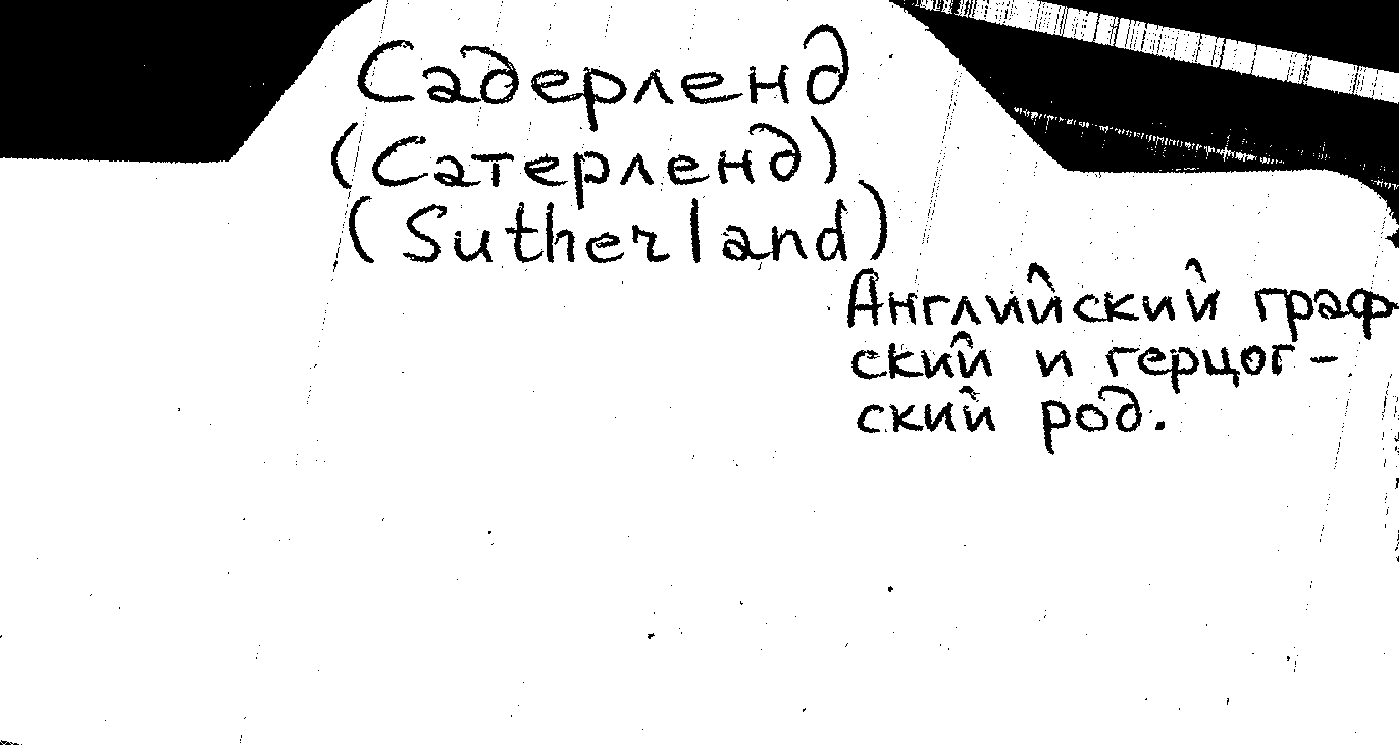 Садерленд
(Сатерленд)
(Sutherland)
Английский граф-
ский и герцог-
ский род.